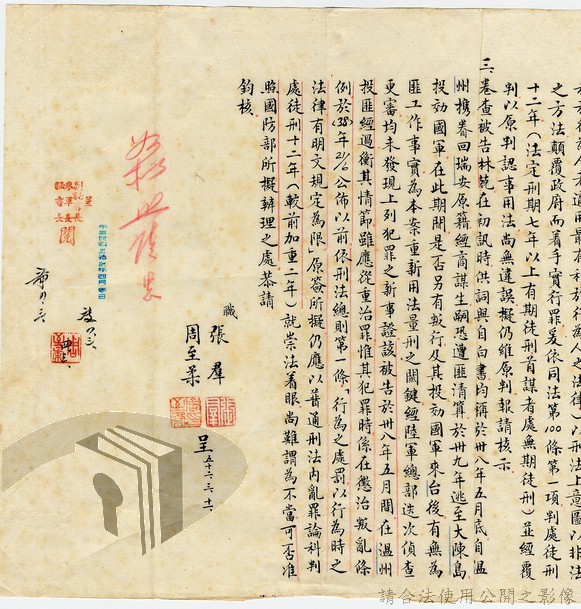 之方法顛覆政府而着手實行罪爰依同法第100條第一項判處徒刑
十二年(法定刑期七年以上有期徒刑首謀者處無期徒刑)並經覆
判以原判認事用法尚無違誤擬仍維原判報請核示
三、卷查被告林範在初訊時供詞與自白書均稱於卅八年五月底自温
州携眷回瑞安原籍經商謀生嗣恐遭匪清算於卅九年逃至大陳島
投効國軍在此期間是否另有叛行及其投効國軍來台後有無為
匪工作事實為本案重新用法量刑之關鍵經陸軍總部迭次偵查
更審均未發現上列犯罪之新事證該被告於卅八年五月間在温州
投匪經過衡其情節雖應從重治罪惟其犯罪時係在懲治叛亂條
例於(38)年2/6公佈以前依刑法總則第一條「行為之處罰以行為時之
法律有明文規定為限」原簽所擬仍應以普通刑法內亂罪論科判
處徒刑十二年(較前加重二年)就崇法着眼尚難謂為不當可否准
照國防部所擬辦理之處恭請
鈞核
職 張羣
周至柔 呈 五十三、三、十一
請合法使用公開之影像